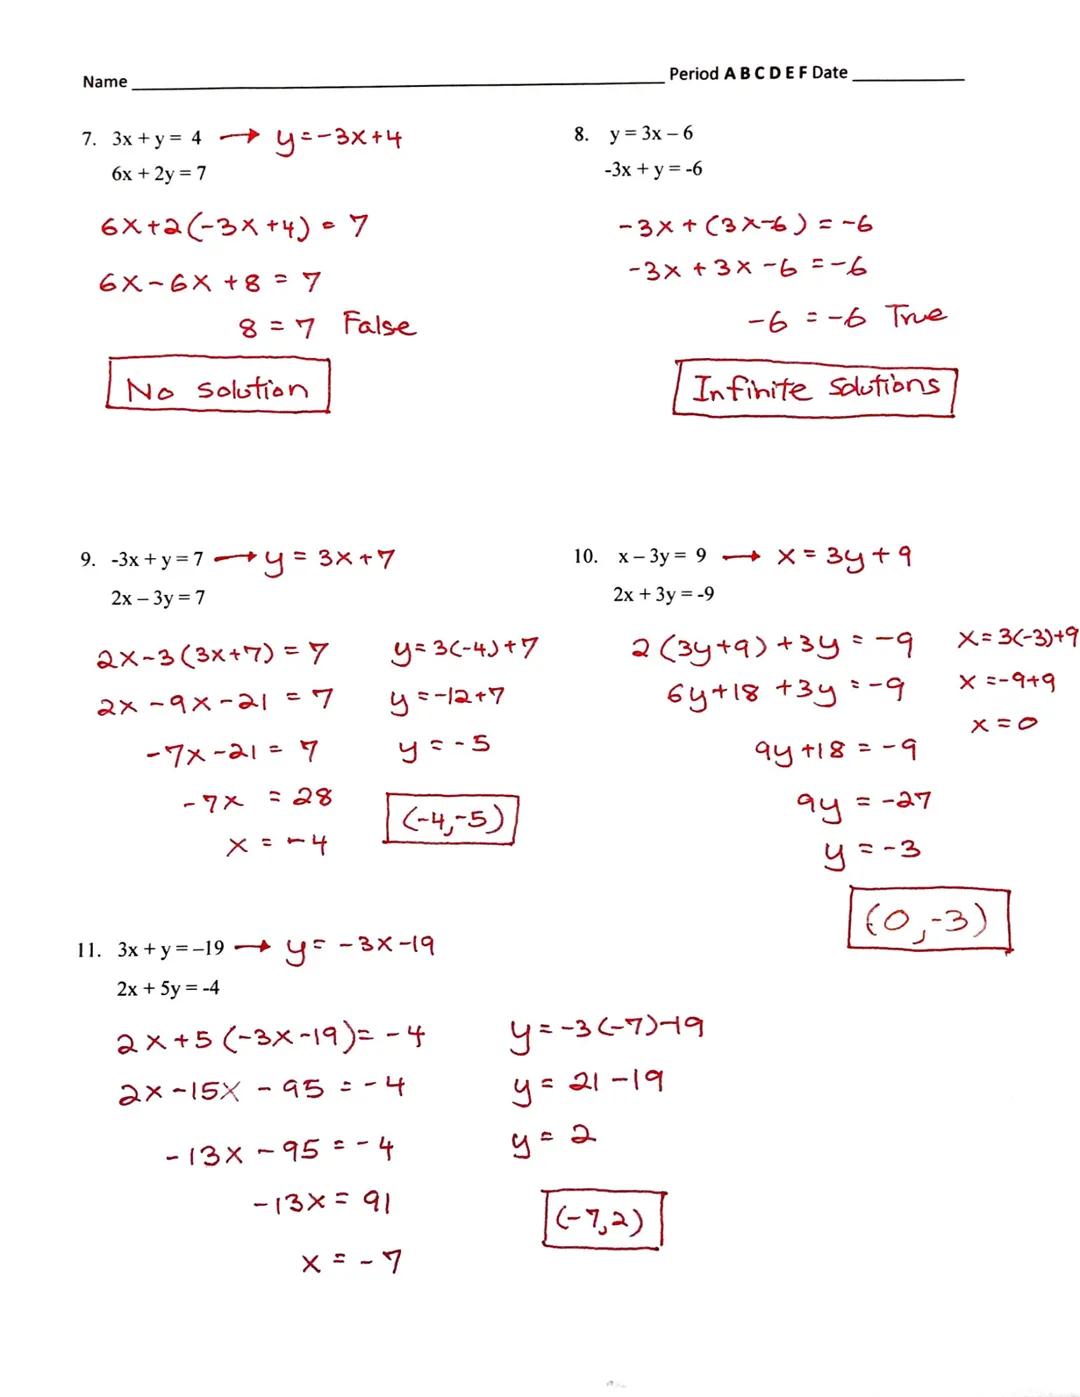 Name Period A B C D E F Date
7. 3x + y = 4 → y = -3x+4
6x + 2y = 7
6x+2(-3x+4) = 7
6x-6x+8 = 7
8 = 7 False
No solution
8. y = 3x – 6
-3x + y = -6
-3x+(3x-6) = -6
-3x+3x-6 = -6
-6 = -6 True
Infinite solutions
9. -3x + y = 7 → y = 3x+7
2x – 3y = 7
2x-3(3x+7) = 7
2x-9x-21 = 7
-7x-21 = 7
-7x = 28
x = -4
y = 3(-4)+7
y = -12+7
y = -5
(-4,-5)
10. x – 3y = 9 → x = 3y+9
2x + 3y = -9
2(3y+9)+3y = -9
6y+18+3y = -9
9y+18 = -9
9y = -27
y = -3
x = 3(-3)+9
x = -9+9
x = 0
(0,-3)
11. 3x + y = –19 → y = -3x-19
2x + 5y = -4
2x+5(-3x-19) = -4
2x-15x-95 = -4
-13x-95 = -4
-13x = 91
x = -7
y = -3(-7)-19
y = 21-19
y = 2
(-7,2)